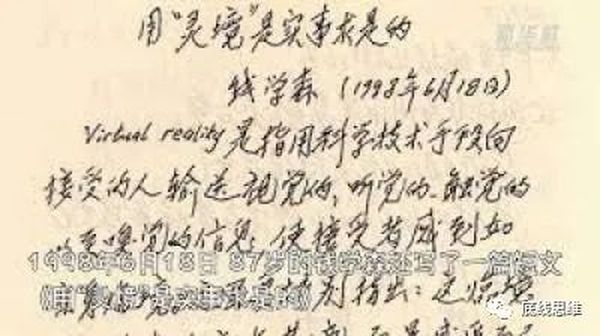 用“灵境”是实事求是的
新华社
钱学森（1998年6月18日）
Virtual reality是指用科学技术手段向
接受的人输送视觉的、听觉的、触觉的
以至嗅觉的信息，使接受者感到如
1998年6月18日 87岁的钱学森还写了一篇短文
《用“灵境”是实事求是的》特别指出：这
底线思维